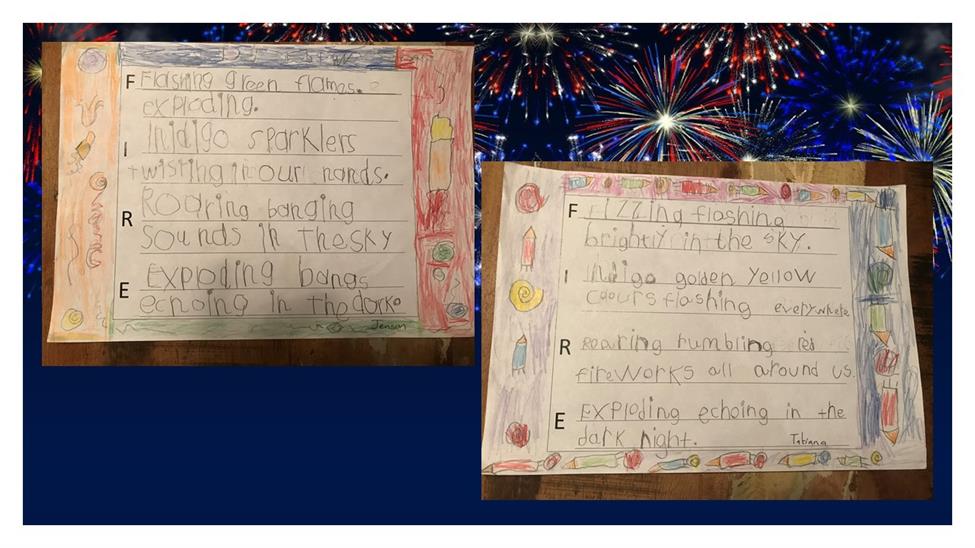 F Flashing green flames.
exploding.
I Inidigo sparklers
twisting in our hands.
R Roaring banging
Sounds in the sky
E Exploding bangs
echoing in the dark.
Jenson
F Fizzing flashing
brightly in the sky.
I Indigo golden yellow
coours flashing everywhere
R Roaring rumbling red
fireworks all around us.
E Exploding echoing in the
dark night.
Tabiana